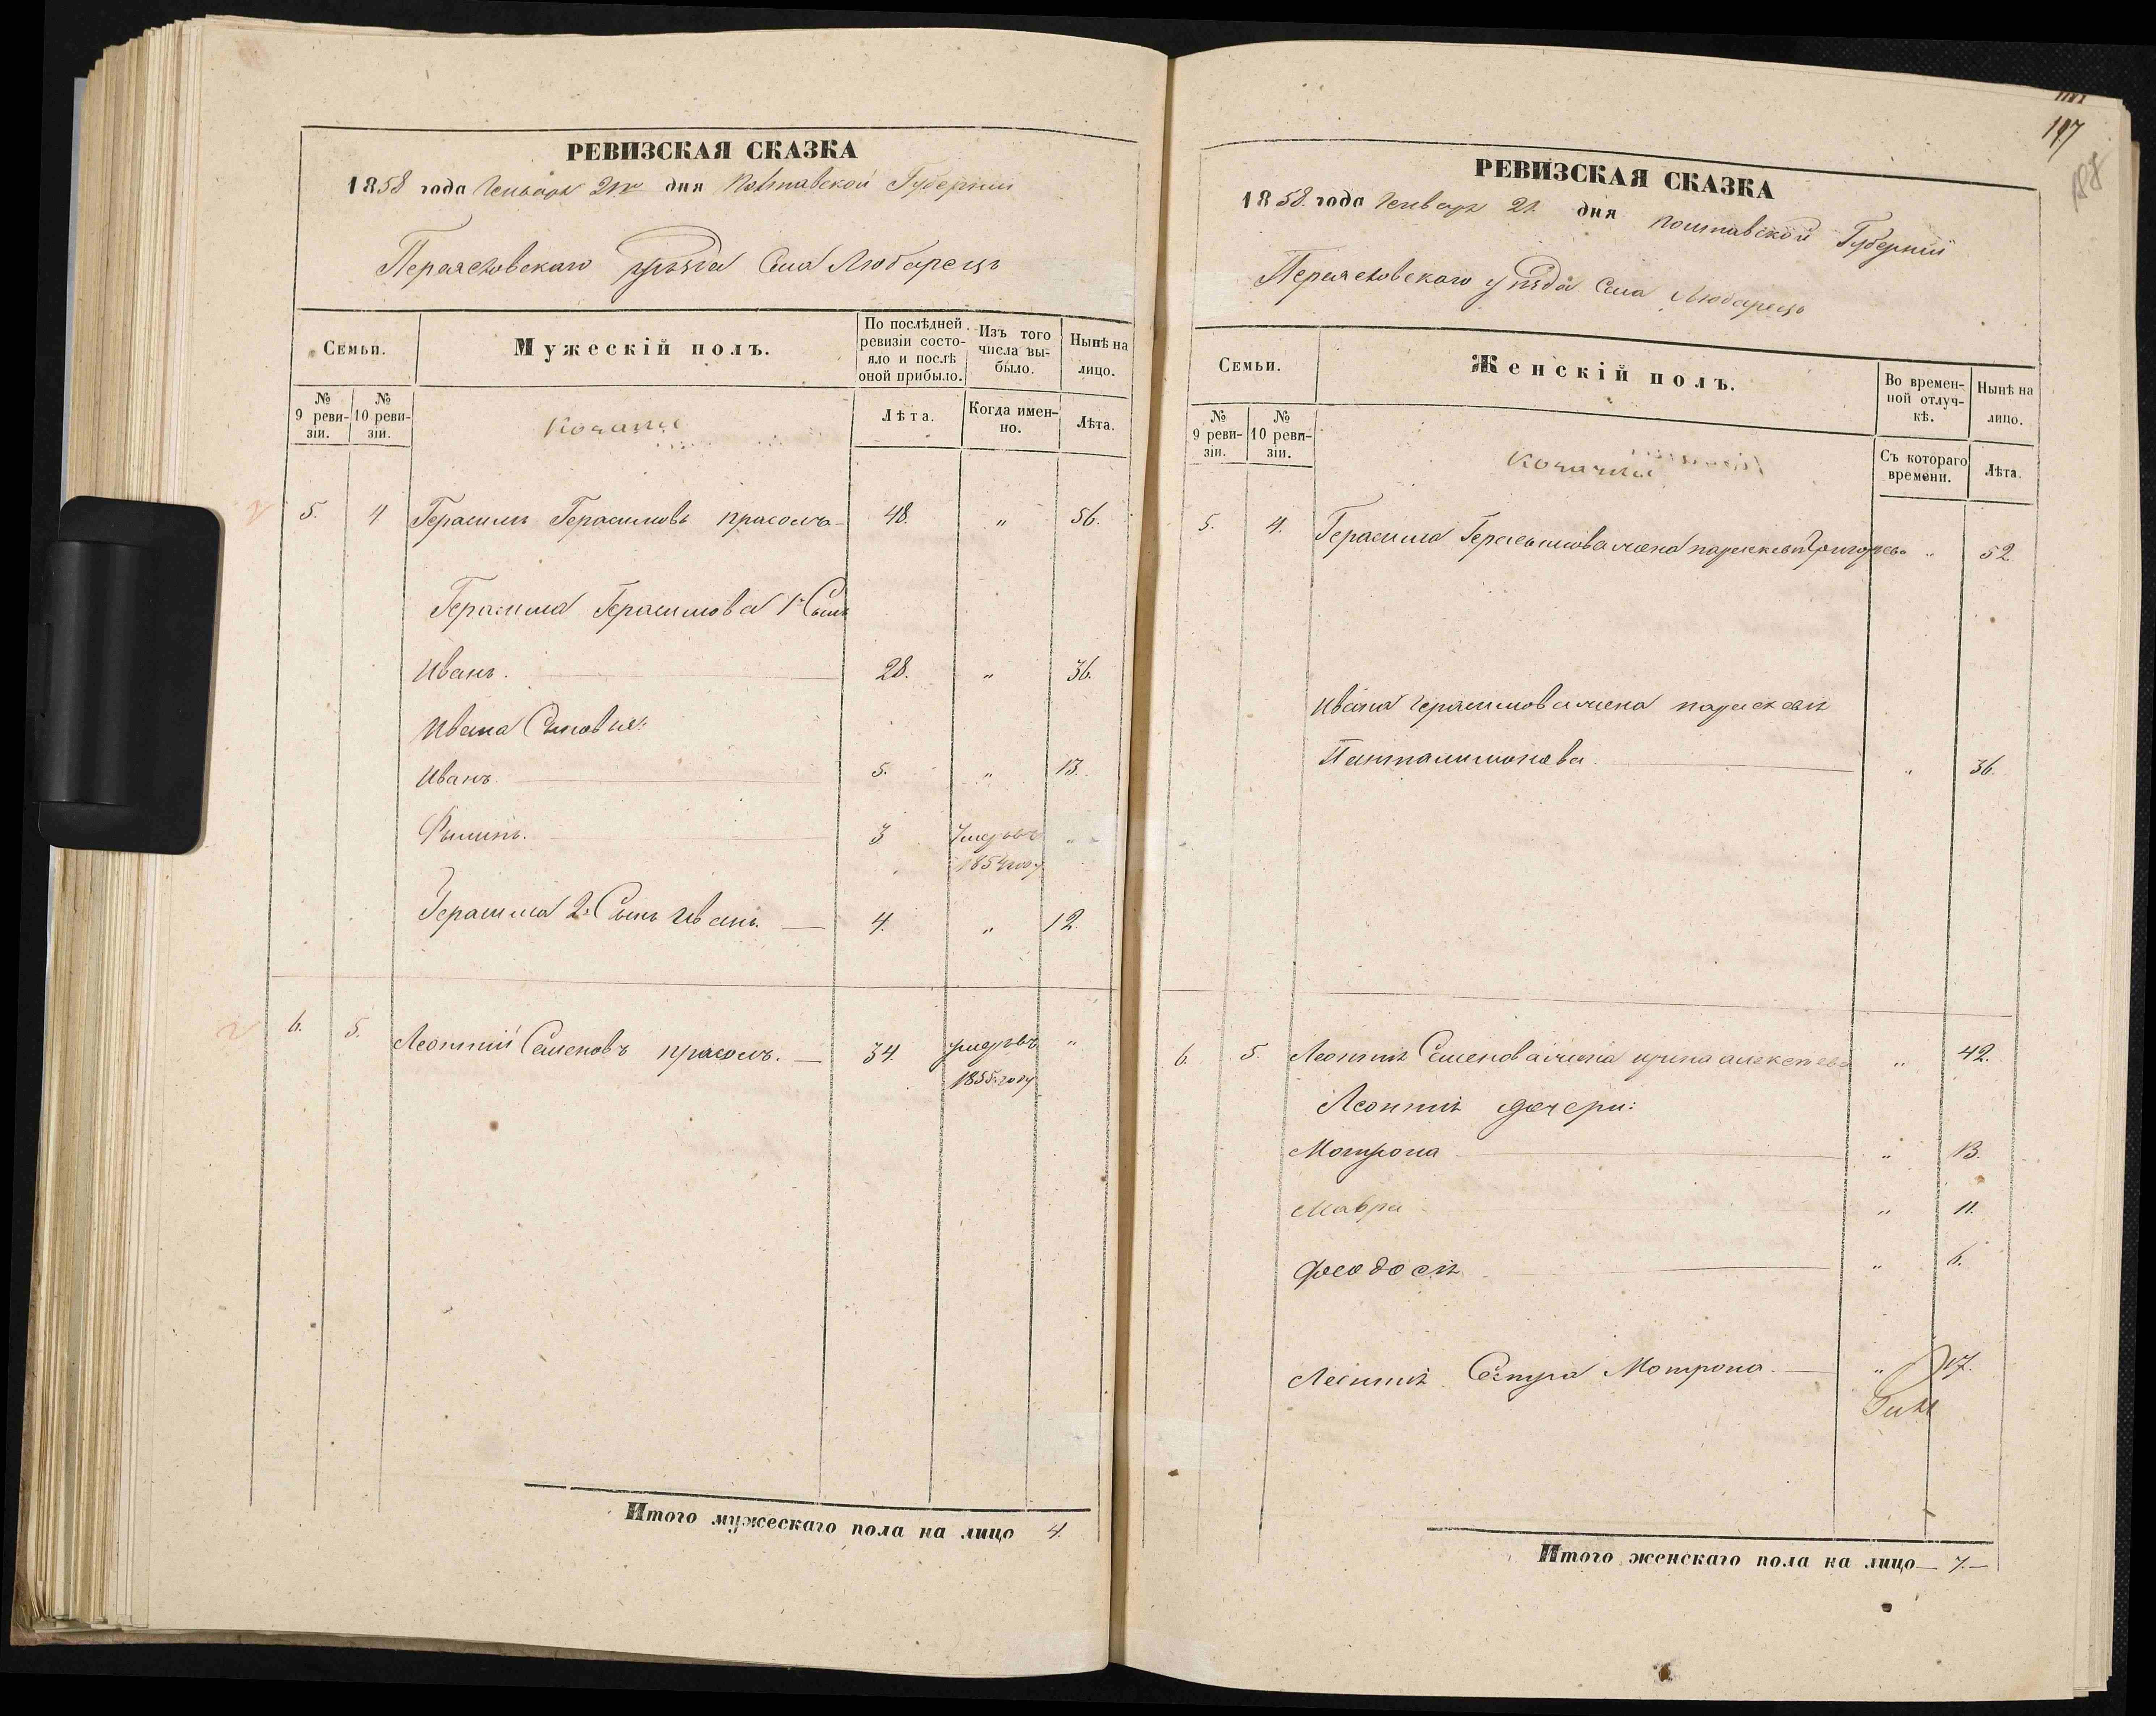 РЕВИЗСКАЯ СКАЗКА
1858 года Генваря 21го дня Полтавской Губернии
Переяславского уѣзда Села Любарецъ
Семьи.
Мужескій полъ.
По послѣдней ревизіи состояло и послѣ оной прибыло.
Изъ того числа выбыло.
Нынѣ на лицо.
№ 9 ревизіи.
№ 10 ревизіи.
Козаки
Лѣта.
Когда именно.
Лѣта.
5. 4. Герасимъ Герасимовъ Прасолъ 48. " 56.
Герасима Герасимова 1й Сынъ
Иванъ. 28. " 36.
Ивана Сыновья:
Иванъ. 5. " 13.
Филипъ. 3 Умеръ въ 1854 году "
Герасима 2й Сынъ Иванъ. 4. " 12.
6. 5. Леонтій Семеновъ Прасолъ. 34. умеръ въ 1855 году "
Итого мужескаго пола на лицо 4.
197
РЕВИЗСКАЯ СКАЗКА
1858 года Генваря 21 дня Полтавской Губерніи
Переяславского уѣзда Села Любарецъ
Семьи.
Женскій полъ.
Во временной отлучкѣ.
Нынѣ на лицо.
№ 9 ревизіи.
№ 10 ревизіи.
Козачки
Съ котораго времени.
Лѣта.
5. 4. Герасима Герасимова жена Параскевія Григорьева " 52
Ивана Герасимова жена Параскевія
Пантелимонова. " 36.
6. 5. Леонтія Семенова жена Ирина Алексѣева " 42.
Леонтія дочери:
Мотрона " 13.
Мавра " 11.
Феодосія " 6.
Леонтія Сестра Мотрона. " 17.
Итого женскаго пола на лицо 7.